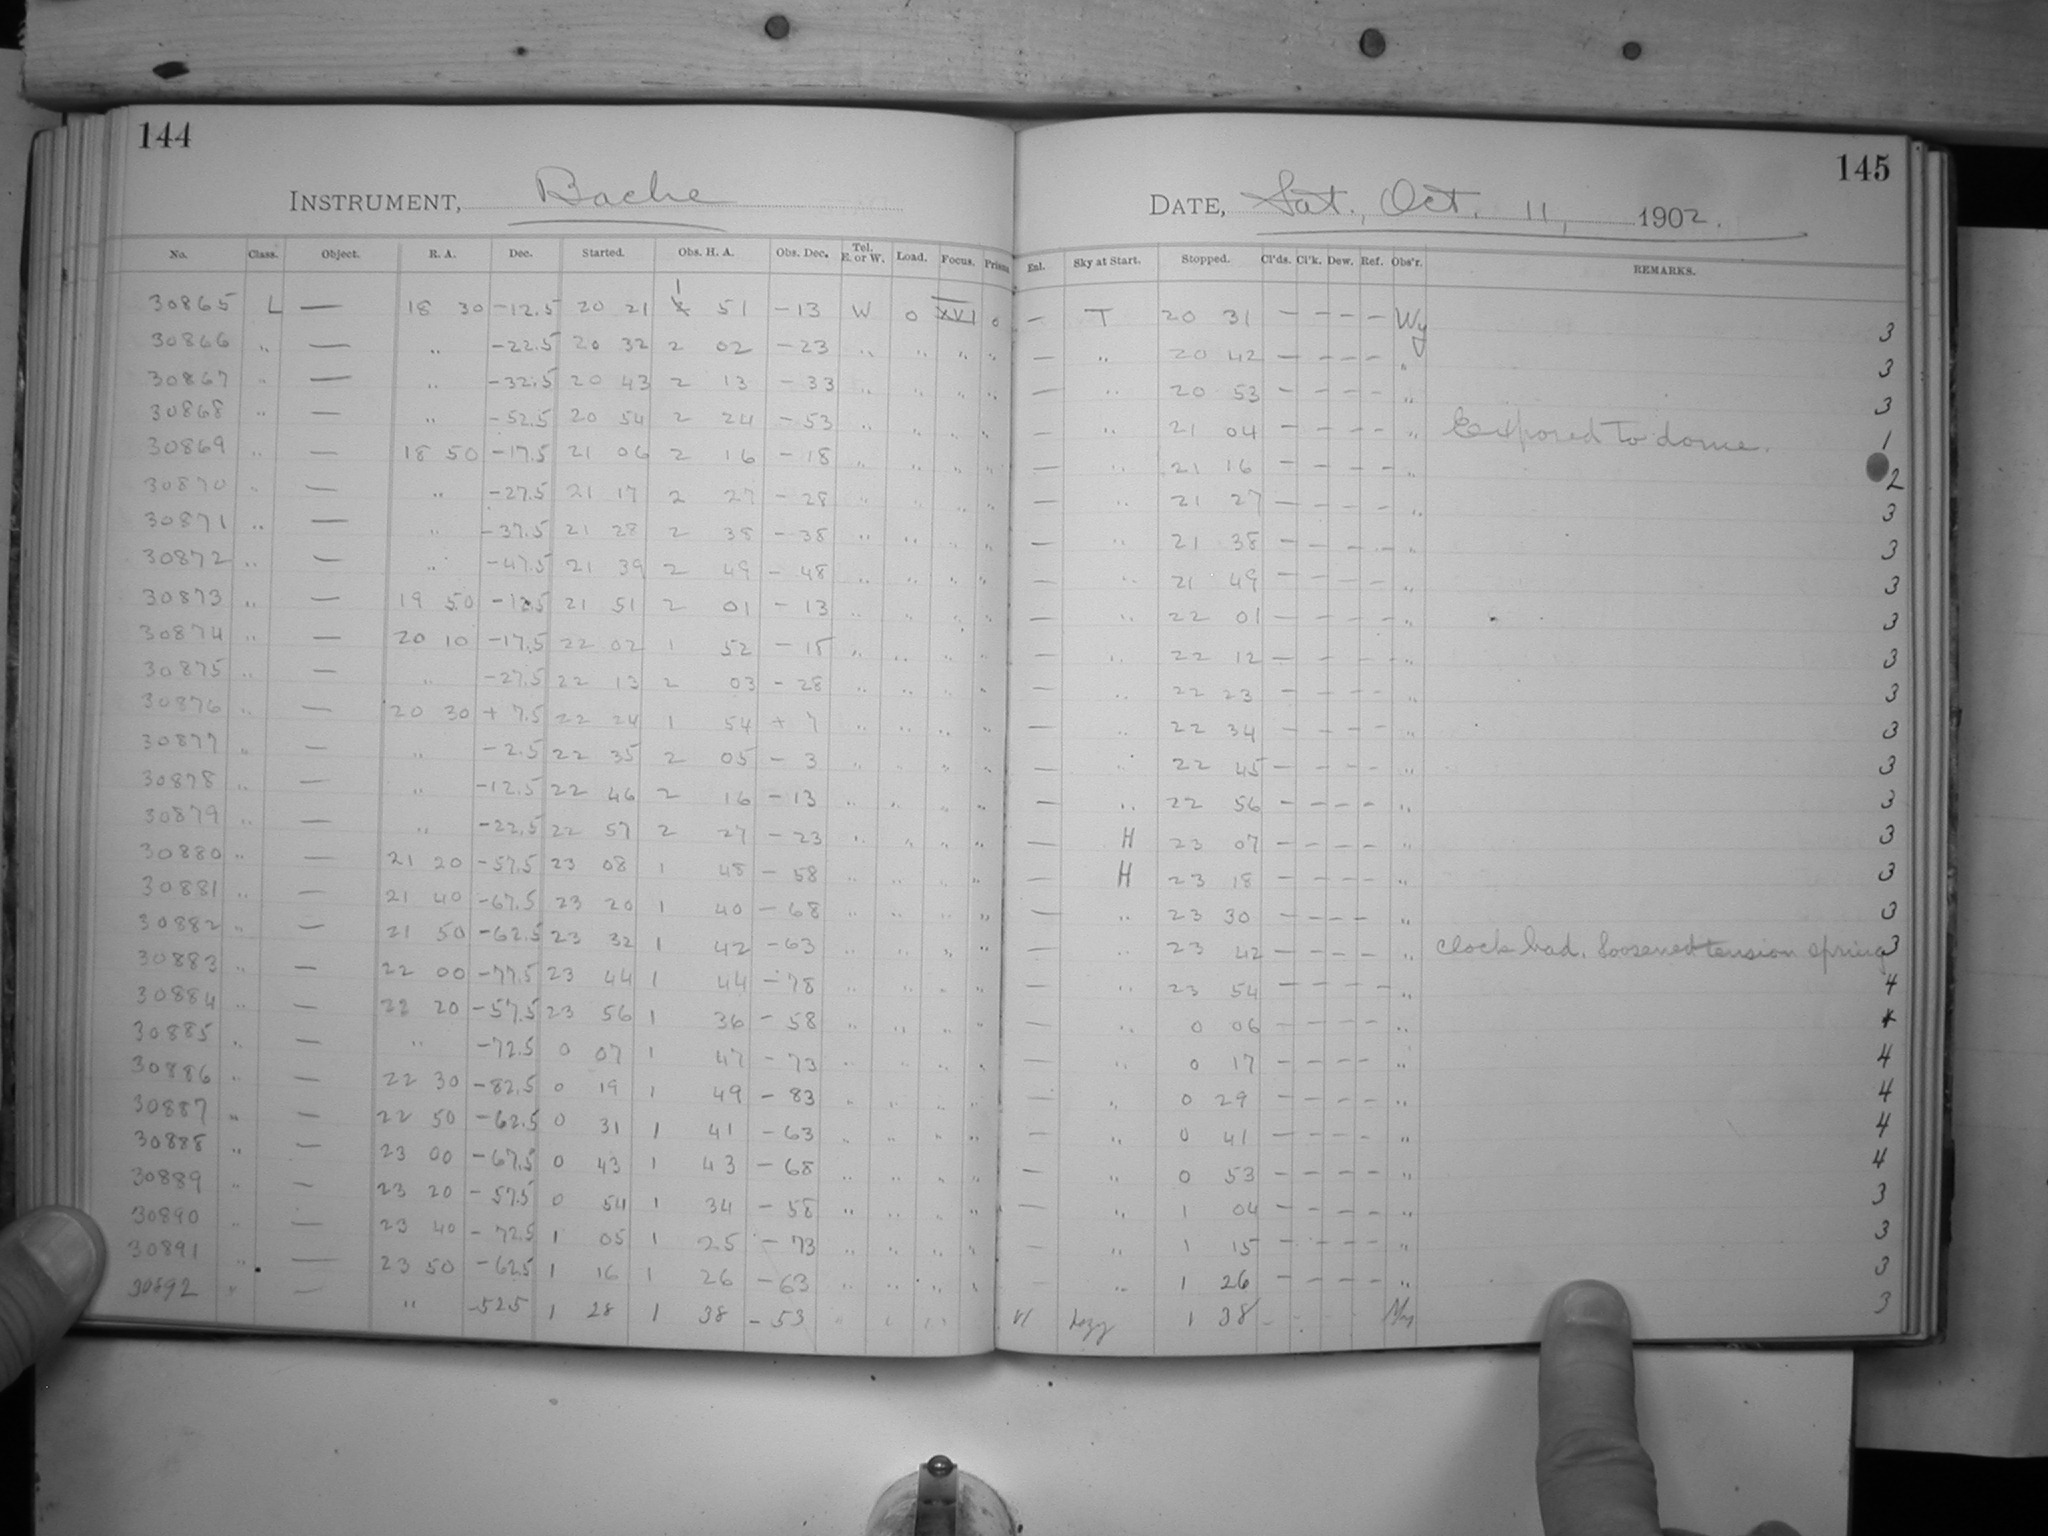 144
INSTRUMENT, Bache
No. Class. Object. R. A. Dec. Started. Obs. H. A. Obs. Dec. Tel. E. or W. Load. Focus. Prism
30865 L — 18 30 -12.5 20 21 1 51 -13 W 0 XVI 0
30866 " — " -22.5 20 32 2 02 -23 " " " "
30867 " — " -32.5 20 43 2 13 -33 " " " "
30868 " — " -52.5 20 54 2 24 -53 " " " "
30869 " — 18 50 -17.5 21 06 2 16 -18 " " " "
30870 " — " -27.5 21 17 2 27 -28 " " " "
30871 " — " -37.5 21 28 2 38 -38 " " " "
30872 " — " -47.5 21 39 2 49 -48 " " " "
30873 " — 19 50 -12.5 21 51 2 01 -13 " " " "
30874 " — 20 10 -17.5 22 02 1 52 -18 " " " "
30875 " — " -27.5 22 13 2 03 -28 " " " "
30876 " — 20 30 +7.5 22 24 1 54 +7 " " " "
30877 " — " -2.5 22 35 2 05 -3 " " " "
30878 " — " -12.5 22 46 2 16 -13 " " " "
30879 " — " -22.5 22 57 2 27 -23 " " " "
30880 " — 21 20 -57.5 23 08 1 48 -58 " " " "
30881 " — 21 40 -67.5 23 20 1 40 -68 " " " "
30882 " — 21 50 -62.5 23 32 1 42 -63 " " " "
30883 " — 22 00 -77.5 23 44 1 44 -78 " " " "
30884 " — 22 20 -57.5 23 56 1 36 -58 " " " "
30885 " — " -72.5 0 07 1 47 -73 " " " "
30886 " — 22 30 -82.5 0 19 1 49 -83 " " " "
30887 " — 22 50 -62.5 0 31 1 41 -63 " " " "
30888 " — 23 00 -67.5 0 43 1 43 -68 " " " "
30889 " — 23 20 -57.5 0 54 1 34 -58 " " " "
30890 " — 23 40 -72.5 1 05 1 25 -73 " " " "
30891 " — 23 50 -62.5 1 16 1 26 -63 " " " "
30892 " — " -52.5 1 28 1 38 -53 " " " "
145
DATE, Sat., Oct. 11, 1902.
Enl. Sky at Start. Stopped. Cl'ds. Cl'k. Dew. Ref. Obs'r. REMARKS.
— T 20 31 — — — — Wy 3
— " 20 42 — — — — " 3
— " 20 53 — — — — " 3
— " 21 04 — — — — " Exposed to dome. 1
— " 21 16 — — — — " 2
— " 21 27 — — — — " 3
— " 21 38 — — — — " 3
— " 21 49 — — — — " 3
— " 22 01 — — — — " 3
— " 22 12 — — — — " 3
— " 22 23 — — — — " 3
— " 22 34 — — — — " 3
— " 22 45 — — — — " 3
— " 22 56 — — — — " 3
— H 23 07 — — — — " 3
— H 23 18 — — — — " 3
— " 23 30 — — — — " 3
— " 23 42 — — — — " Clock bad. Loosened tension spring 3
— " 23 54 — — — — " 4
— " 0 06 — — — — " 4
— " 0 17 — — — — " 4
— " 0 29 — — — — " 4
— " 0 41 — — — — " 4
— " 0 53 — — — — " 4
— " 1 04 — — — — " 3
— " 1 15 — — — — " 3
— " 1 26 — — — — " 3
1 38 3